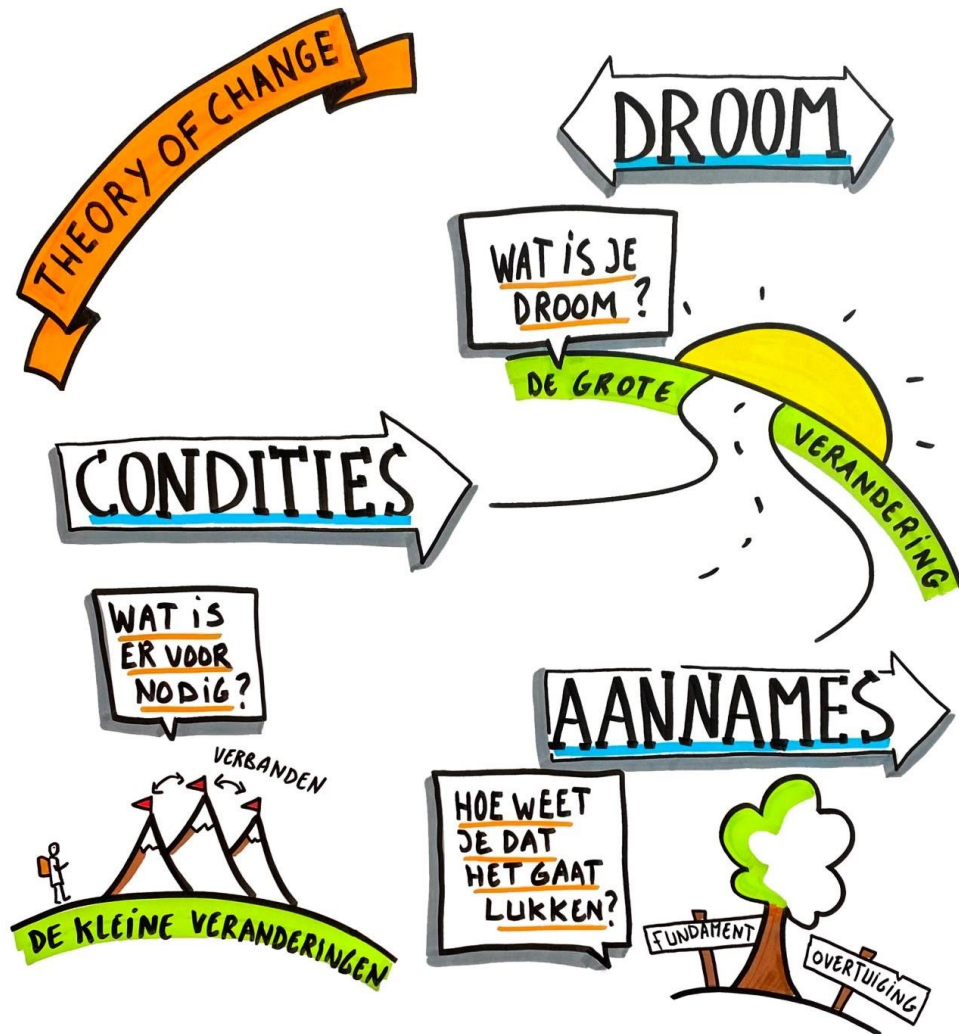 THEORY OF CHANGE
DROOM
WAT iS JE
DROOM?
DE GROTE
VERANDERiNG
CONDITIES
WAT iS
ER VOOR
NODiG?
VERBANDEN
DE KLEiNE VERANDERiNGEN
AANNAMES
HOE WEET
JE DAT
HET GAAT
LUKKEN?
FUNDAMENT
OVERTUiGiNG